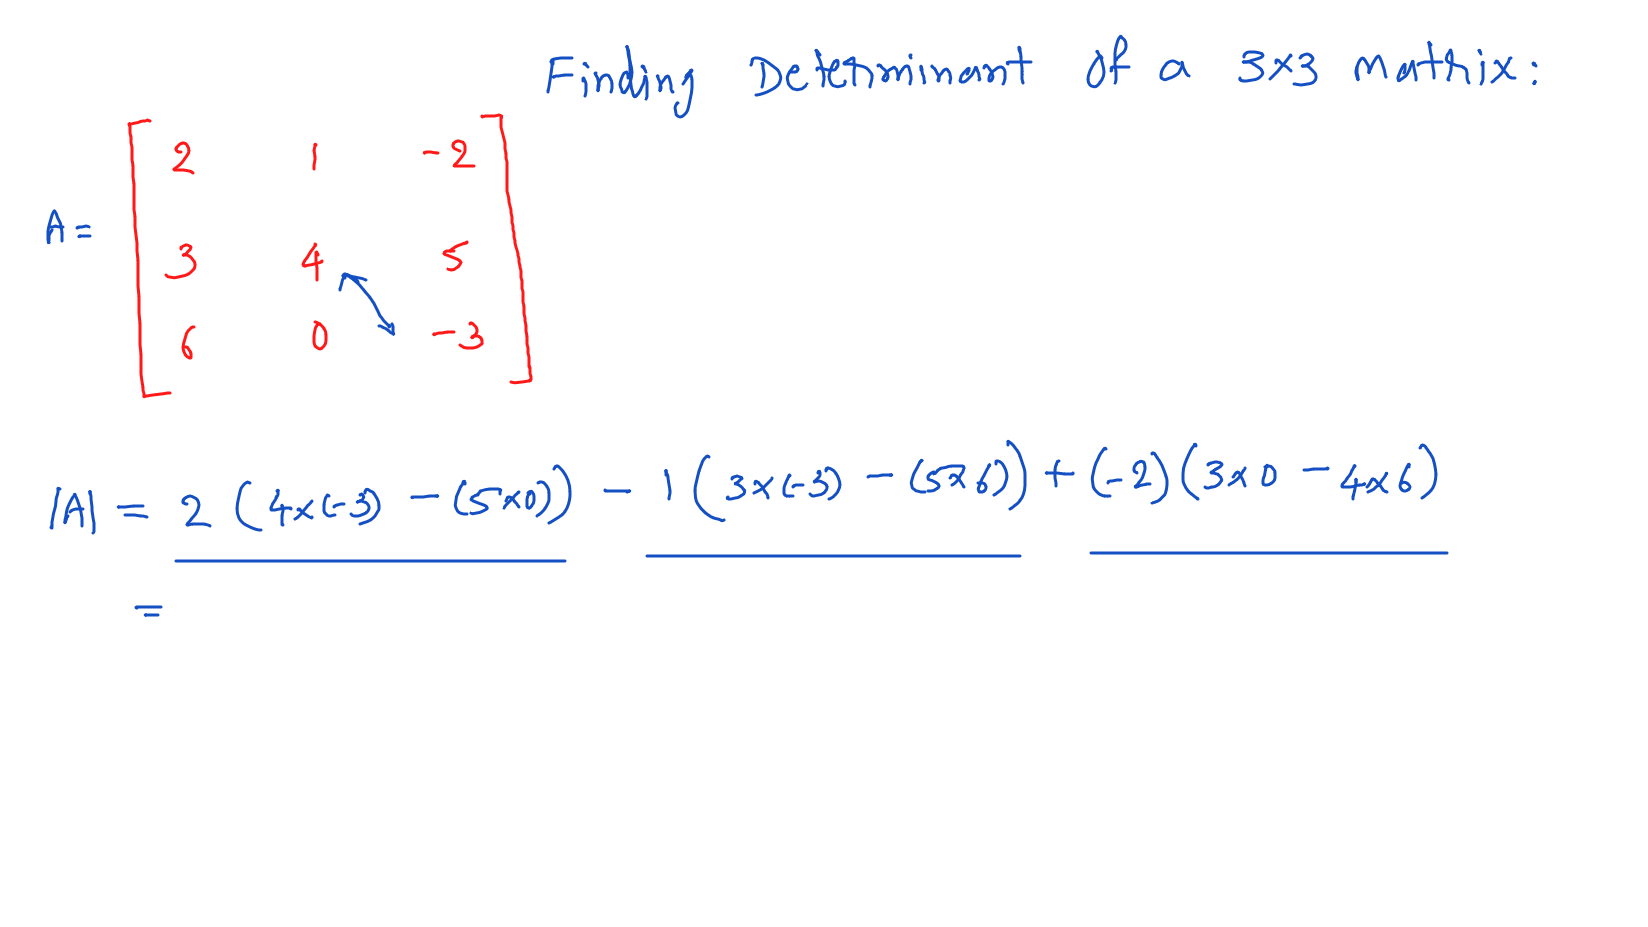 Finding Determinant of a 3×3 matrix:
2 1 -2
A= 3 4 5
6 0 -3
|A| = 2 (4×(-3) - (5×0)) - 1 (3×(-3) - (5×6)) + (-2) (3×0 - 4×6)
=